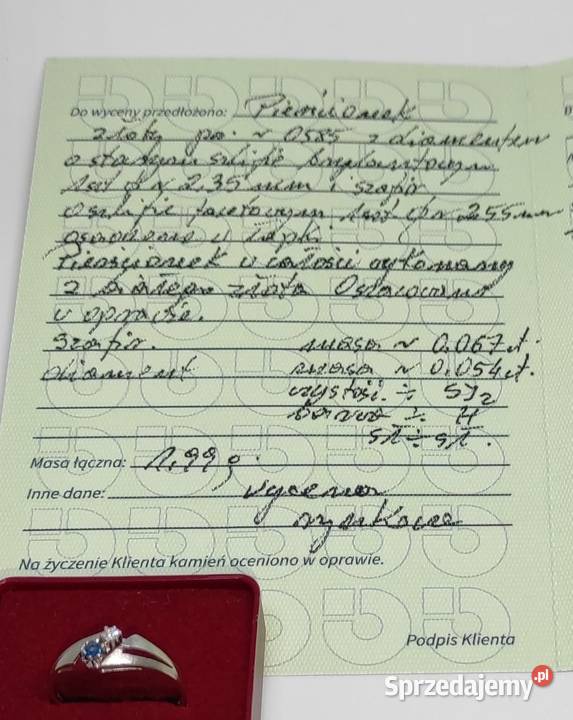 Do wyceny przedłożono: Pierścionek
złoty pr. ~ 0585 z diamentem
o starym szlifie brylantowym
1szt ϕ ~ 2,35 mm i szafir
o szlifie facetowym 1szt ϕ ~ 2,55 mm
osadzone w łapki.
Pierścionek w całości wykonany
z białego złota Oszacowano
w oprawie.
Szafir. masa ~ 0,067 ct.
diament masa ~ 0,054 ct.
czystość ÷ SI2
barwa ÷ H
Masa łączna: 1,99 g.
Inne dane: wycena
rynkowa
Na życzenie Klienta kamień oceniono w oprawie.
Podpis Klienta
Sprzedajemy.pl